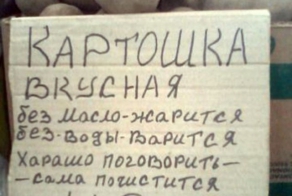 КАРТОШКА
ВКУСНАЯ
без масло-жарится
без-воды-варится
Харашо поговорить-
-сама почистится